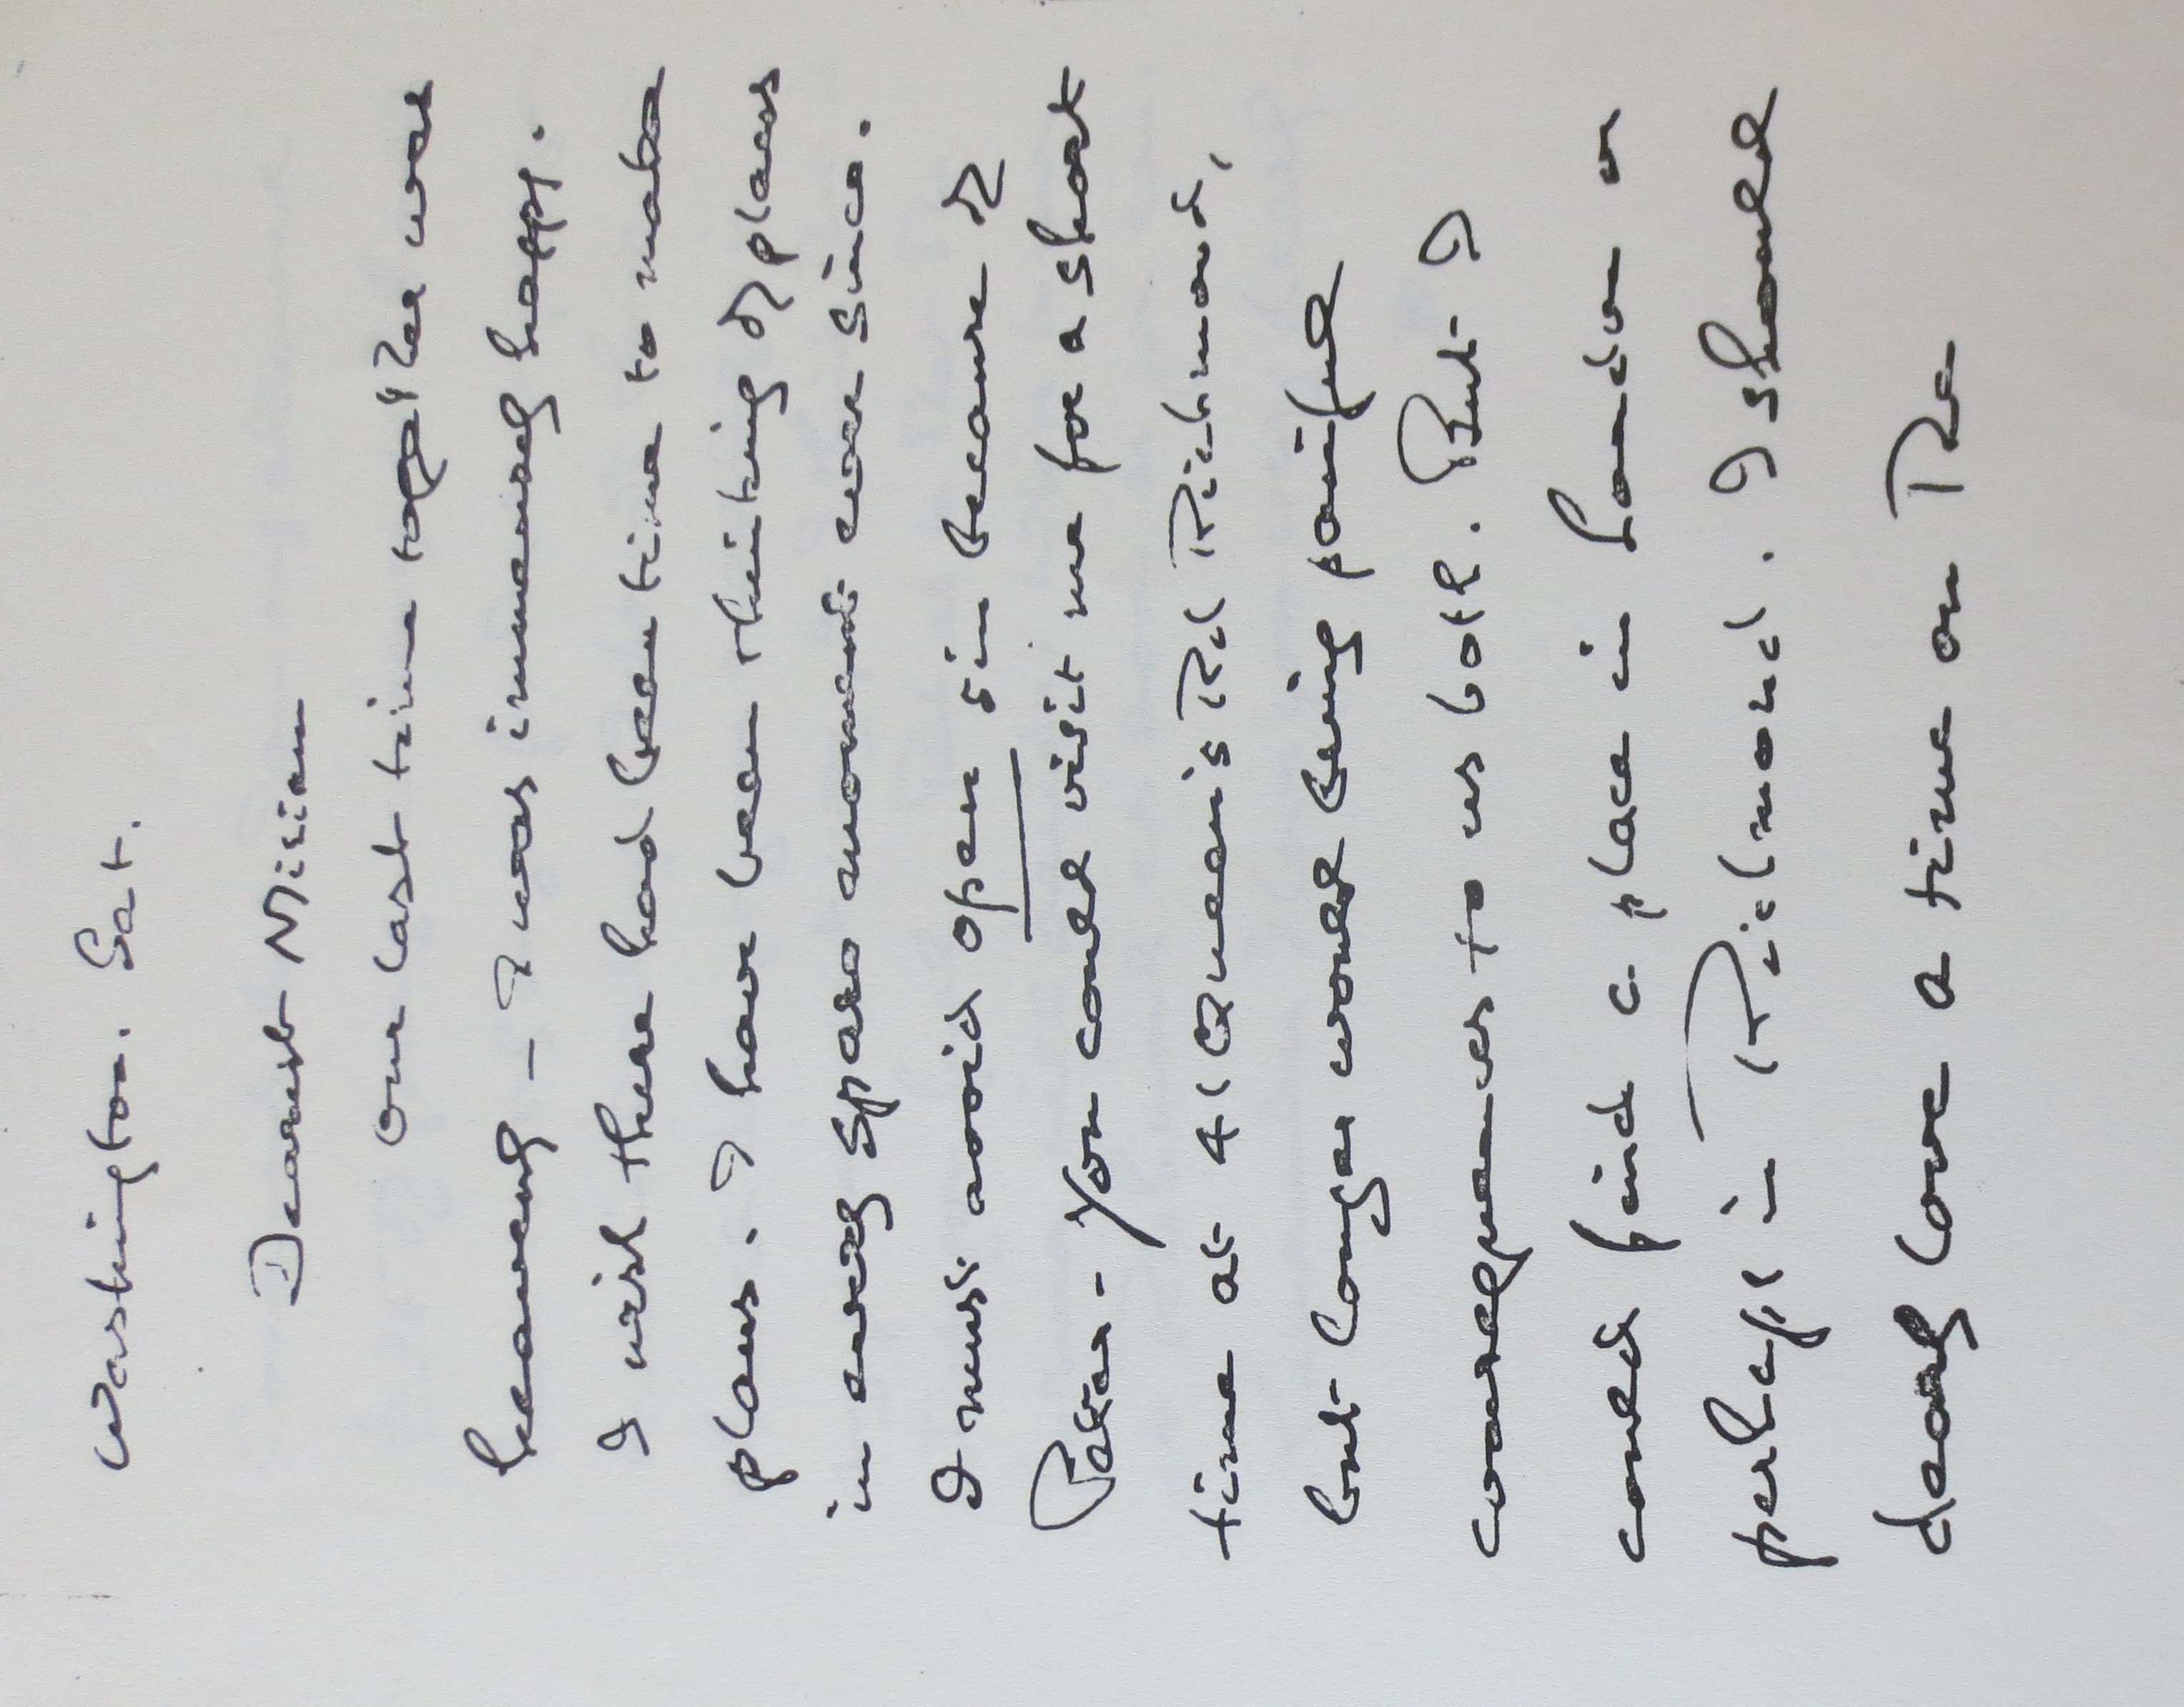 Washington. Sat.
Dearest Miriam
Our last time together was
heavenly - I was immensely happy.
I wish there had been time to make
plans. I have been thinking of plans
in every spare moment ever since.
I must avoid open sin because of
Peter - You could visit me for a short
time at 41 Queen's Rd Richmond,
but longer would bring painful
consequences to us both. But I
could find a place in London or
perhaps in Richmond. I should
dearly love a time on the